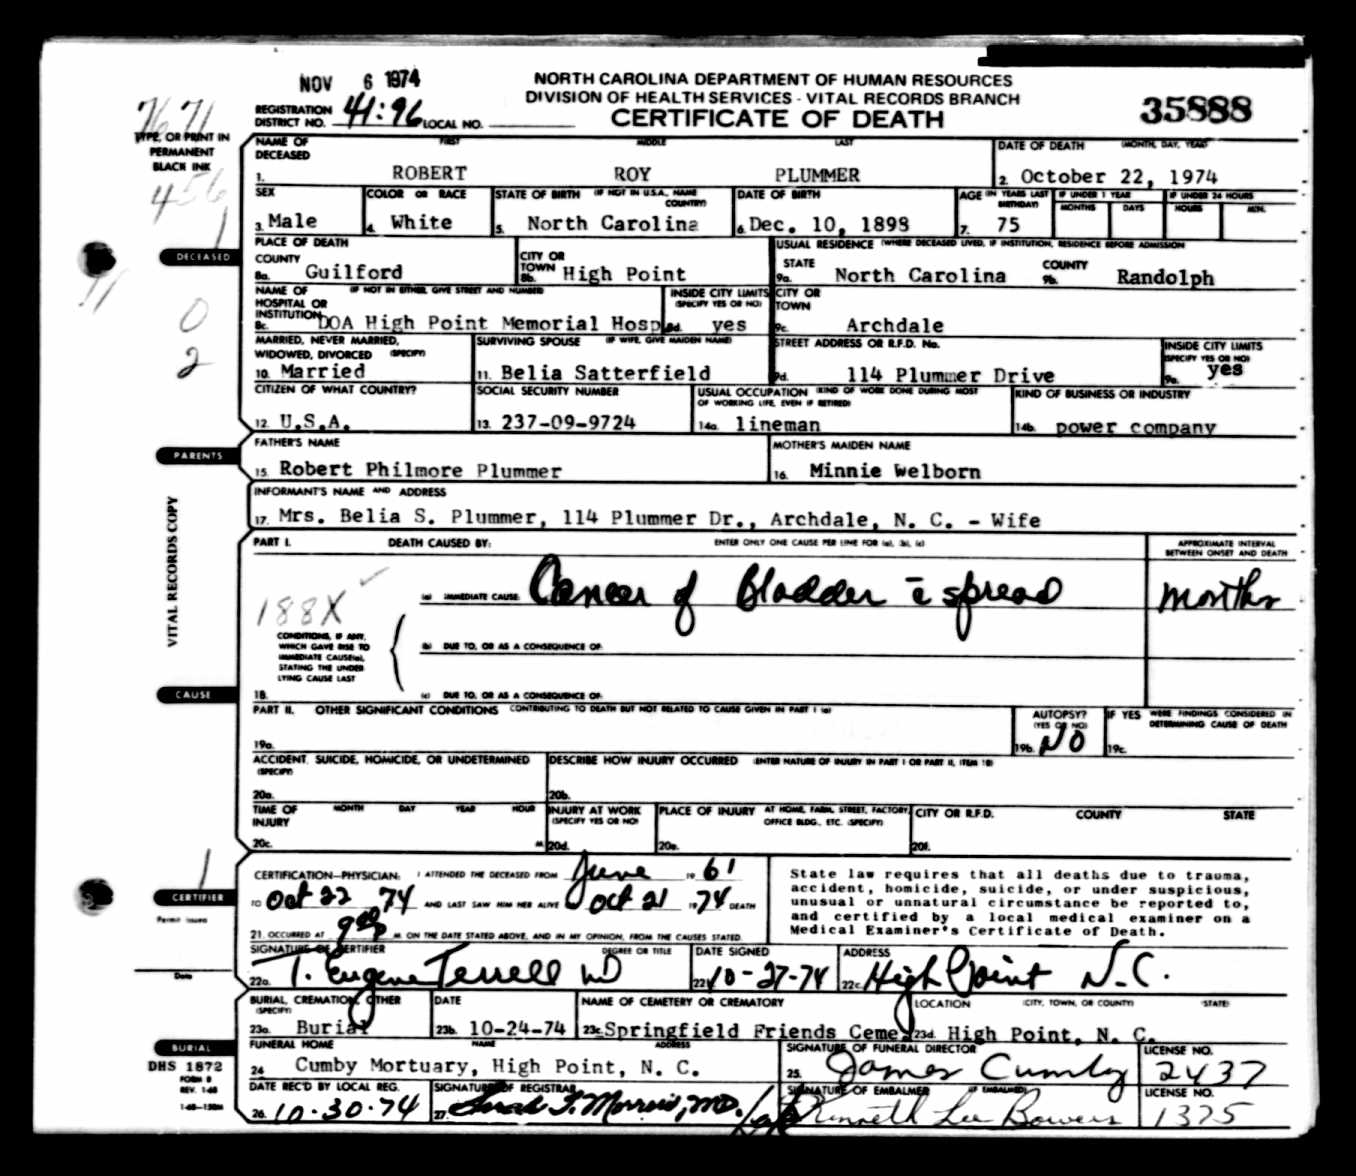 NOV 6 1974
NORTH CAROLINA DEPARTMENT OF HUMAN RESOURCES
DIVISION OF HEALTH SERVICES - VITAL RECORDS BRANCH
CERTIFICATE OF DEATH
35888
REGISTRATION DISTRICT NO. 41:96 LOCAL NO.
7671
TYPE, OR PRINT IN
PERMANENT
BLACK INK
456
1
NAME OF DECEASED FIRST MIDDLE LAST
1. ROBERT ROY PLUMMER
DATE OF DEATH (MONTH, DAY, YEAR)
2. October 22, 1974
SEX
3. Male
COLOR OR RACE
4. White
STATE OF BIRTH (IF NOT IN U.S.A., NAME COUNTRY)
5. North Carolina
DATE OF BIRTH
6. Dec. 10, 1898
AGE (IN YEARS LAST BIRTHDAY)
7. 75
IF UNDER 1 YEAR
MONTHS DAYS
IF UNDER 24 HOURS
HOURS MIN.
DECEASED
PLACE OF DEATH
COUNTY
8a. Guilford
CITY OR TOWN
8b. High Point
USUAL RESIDENCE (WHERE DECEASED LIVED, IF INSTITUTION, RESIDENCE BEFORE ADMISSION
STATE
9a. North Carolina
COUNTY
9b. Randolph
0
2
NAME OF HOSPITAL OR INSTITUTION (IF NOT IN EITHER, GIVE STREET AND NUMBER)
8c. DOA High Point Memorial Hosp
INSIDE CITY LIMITS (SPECIFY YES OR NO)
8d. yes
CITY OR TOWN
9c. Archdale
MARRIED, NEVER MARRIED, WIDOWED, DIVORCED (SPECIFY)
10. Married
SURVIVING SPOUSE (IF WIFE, GIVE MAIDEN NAME)
11. Belia Satterfield
STREET ADDRESS OR R.F.D. No.
9d. 114 Plummer Drive
INSIDE CITY LIMITS (SPECIFY YES OR NO)
9e. yes
CITIZEN OF WHAT COUNTRY?
12. U.S.A.
SOCIAL SECURITY NUMBER
13. 237-09-9724
USUAL OCCUPATION (KIND OF WORK DONE DURING MOST OF WORKING LIFE, EVEN IF RETIRED)
14a. lineman
KIND OF BUSINESS OR INDUSTRY
14b. power company
PARENTS
FATHER'S NAME
15. Robert Philmore Plummer
MOTHER'S MAIDEN NAME
16. Minnie Welborn
INFORMANT'S NAME AND ADDRESS
17. Mrs. Belia S. Plummer, 114 Plummer Dr., Archdale, N. C. - Wife
VITAL RECORDS COPY
PART I. DEATH CAUSED BY: ENTER ONLY ONE CAUSE PER LINE FOR (a), (b), (c)
APPROXIMATE INTERVAL BETWEEN ONSET AND DEATH
(a) IMMEDIATE CAUSE: Cancer of Bladder c̄ spread months
188X
CONDITIONS, IF ANY,
WHICH GAVE RISE TO
IMMEDIATE CAUSE(a),
STATING THE UNDER
LYING CAUSE LAST
(b) DUE TO, OR AS A CONSEQUENCE OF:
CAUSE
18. (c) DUE TO, OR AS A CONSEQUENCE OF:
PART II. OTHER SIGNIFICANT CONDITIONS CONTRIBUTING TO DEATH BUT NOT RELATED TO CAUSE GIVEN IN PART I (a)
19a.
AUTOPSY? (YES OR NO)
19b. NO
IF YES WERE FINDINGS CONSIDERED IN DETERMINING CAUSE OF DEATH
19c.
ACCIDENT, SUICIDE, HOMICIDE, OR UNDETERMINED (SPECIFY)
20a.
DESCRIBE HOW INJURY OCCURRED (ENTER NATURE OF INJURY IN PART I OR PART II, ITEM 18)
20b.
TIME OF INJURY MONTH DAY YEAR HOUR
20c. M.
INJURY AT WORK (SPECIFY YES OR NO)
20d.
PLACE OF INJURY AT HOME, FARM, STREET, FACTORY, OFFICE BLDG., ETC. (SPECIFY)
20e.
CITY OR R.F.D. COUNTY STATE
20f.
1
CERTIFIER
Permit Issued
Date
CERTIFICATION—PHYSICIAN: I ATTENDED THE DECEASED FROM June 19 61
TO Oct 22 74 AND LAST SAW HIM HER ALIVE Oct 21 1974 DEATH
21. OCCURRED AT 9 00 P M. ON THE DATE STATED ABOVE, AND IN MY OPINION, FROM THE CAUSES STATED.
State law requires that all deaths due to trauma,
accident, homicide, suicide, or under suspicious,
unusual or unnatural circumstance be reported to,
and certified by a local medical examiner on a
Medical Examiner's Certificate of Death.
SIGNATURE OF CERTIFIER DEGREE OR TITLE
22a. T. Eugene Terrell MD
DATE SIGNED
22b. 10-27-74
ADDRESS
22c. High Point N.C.
BURIAL, CREMATION, OTHER (SPECIFY)
23a. Burial
DATE
23b. 10-24-74
NAME OF CEMETERY OR CREMATORY
23c. Springfield Friends Ceme
LOCATION (CITY, TOWN, OR COUNTY) (STATE)
23d. High Point, N. C.
BURIAL
DHS 1872
FORM 8
REV. 1-68
1-68-150M
FUNERAL HOME NAME ADDRESS
24. Cumby Mortuary, High Point, N. C.
SIGNATURE OF FUNERAL DIRECTOR
25. James Cumby
LICENSE NO.
2437
DATE REC'D BY LOCAL REG.
26. 10-30-74
SIGNATURE OF REGISTRAR
27. Sarah T. Morrow, MD.
SIGNATURE OF EMBALMER (IF EMBALMED)
Kenneth Lee Bowers
LICENSE NO.
1375